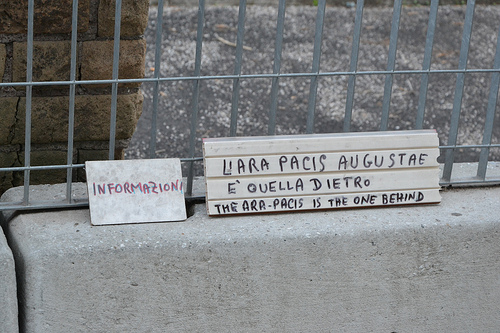 INFORMAZIONI
L'ARA PACIS AUGUSTAE
E' QUELLA DIETRO
THE ARA-PACIS IS THE ONE BEHIND